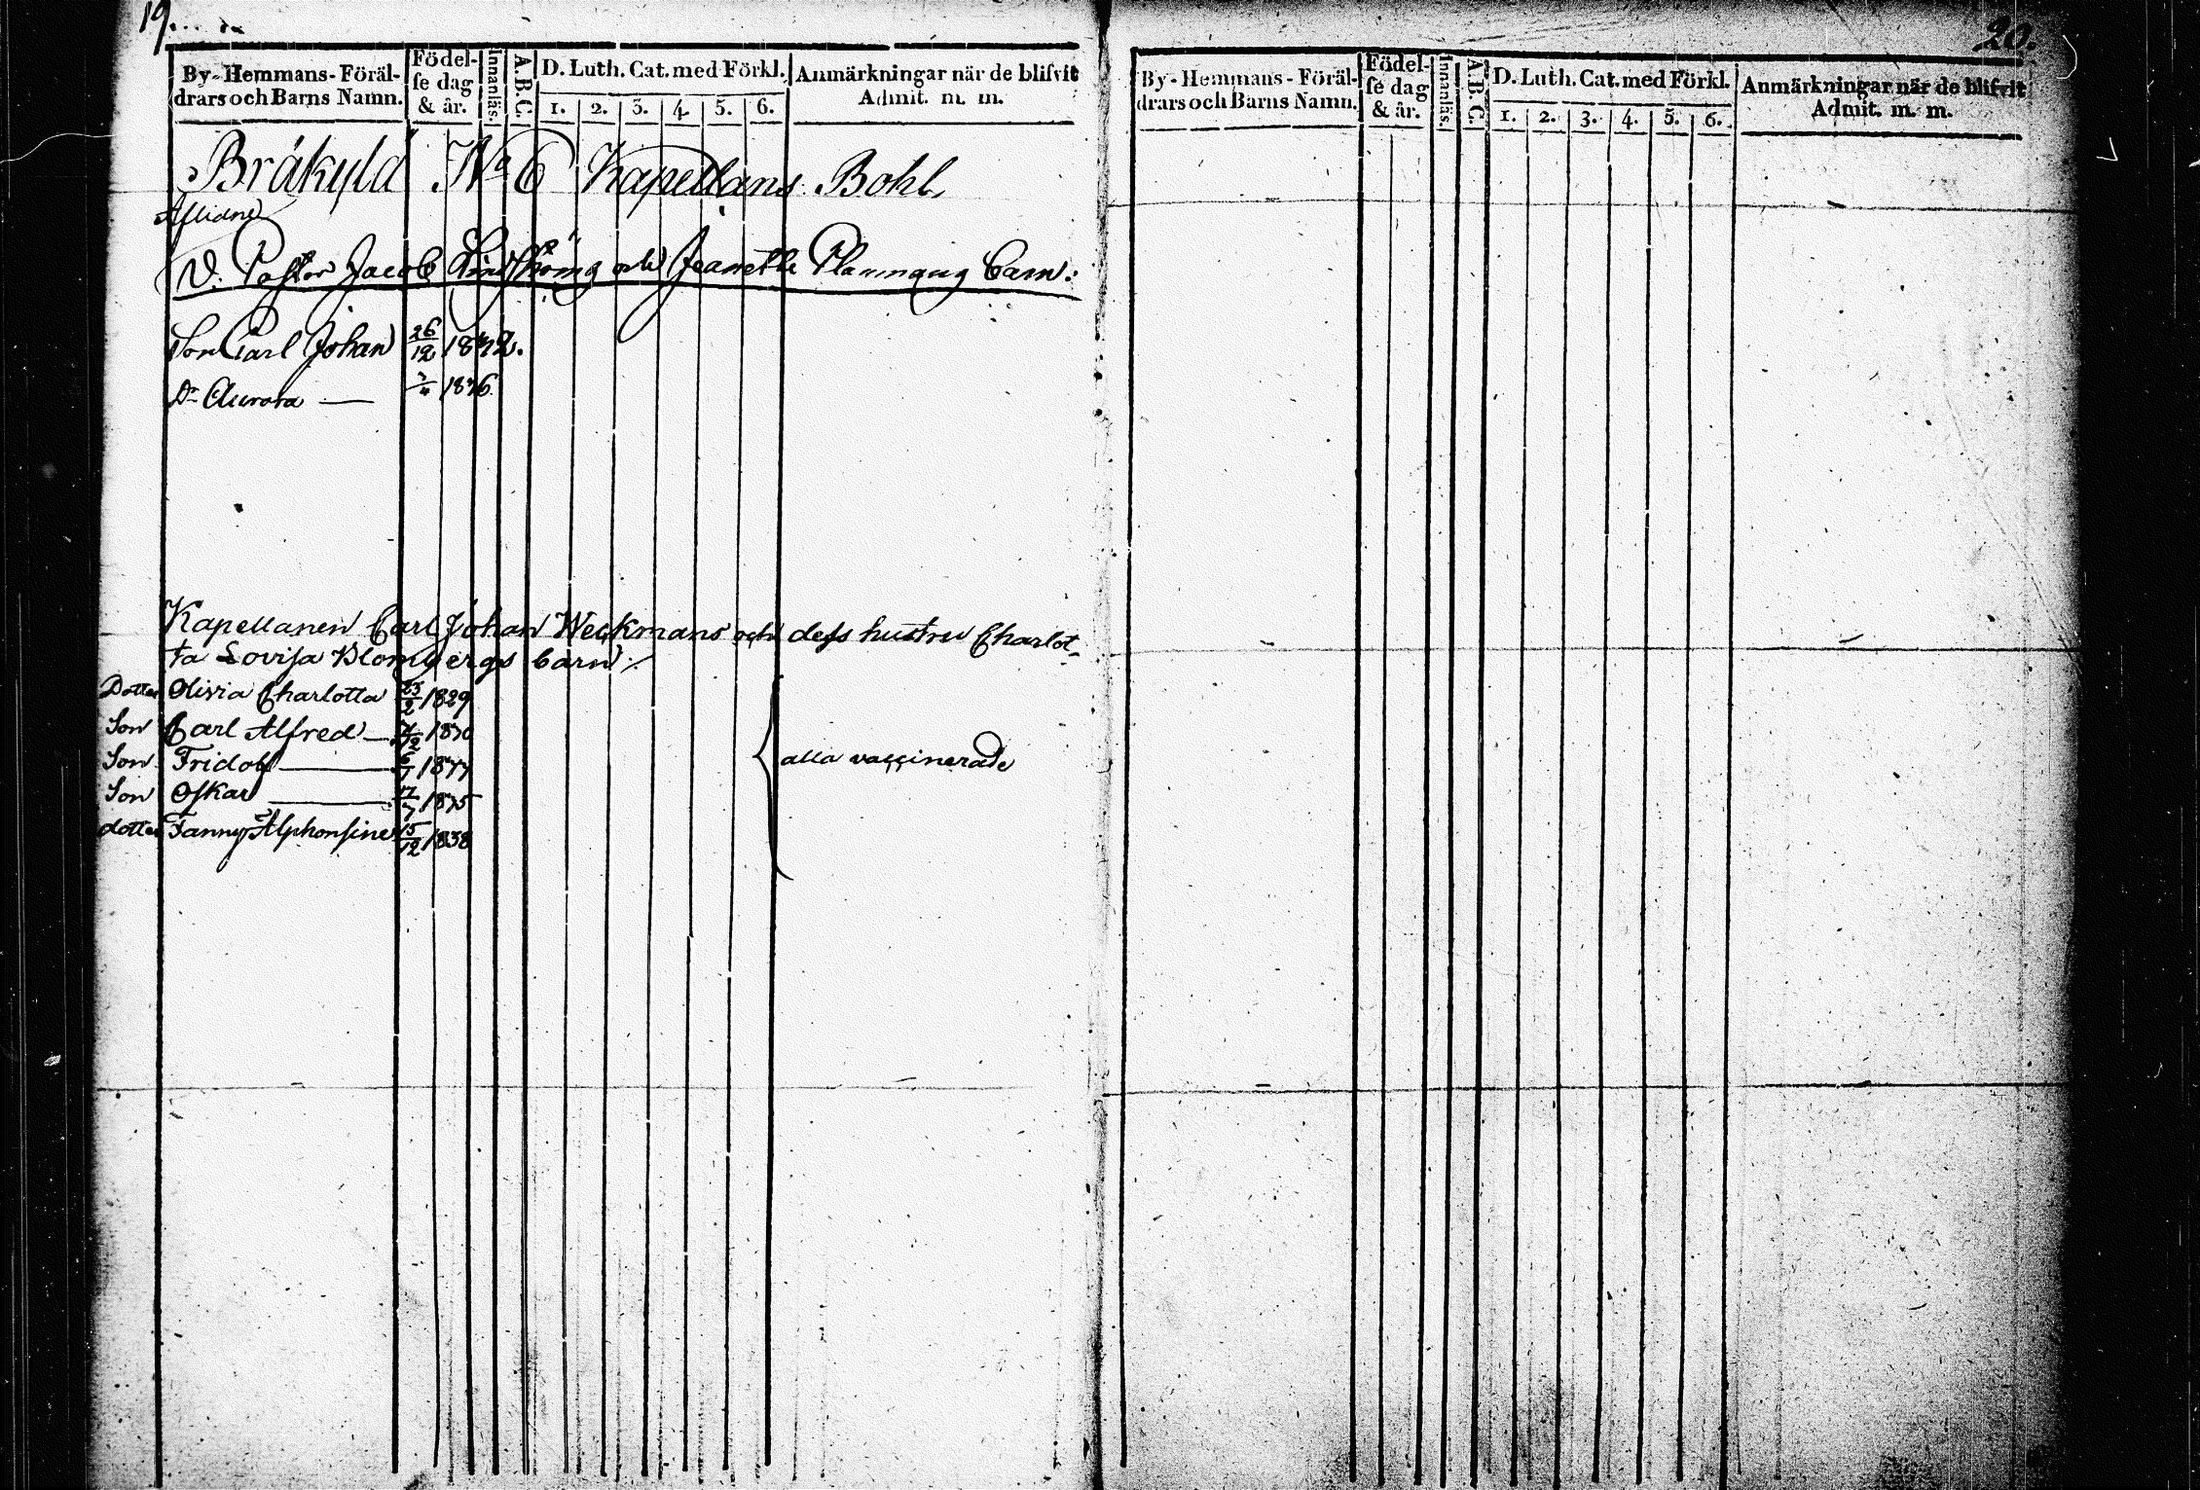 19.
By-Hemmans-Föräl-
drars och Barns Namn.
Födel-
se dag
& år.
Innanläs.
A.B.C.
D. Luth. Cat. med Förkl.
1. 2. 3. 4. 5. 6.
Anmärkningar när de blifvit
Admit. m. m.
Bräkylä No 6 Kapellans Bohl.
Aflidne
V. Pastor Jacob och Jeanette Barn:
Son Carl Johan 26/12 1832.
Dr Aurora — 1836
Kapellanen Carl Johan Weckmans och dess hustru Charlot-
ta Lovisa Blombergs barn
Dotter Olivia Charlotta 23/2 1829
Son Carl Alfred — 1830
Son Fridolf — 1833
Son Oskar — 1835
dotter Fanny Alphonsine 15/12 1838
alla vaccinerade
20.
By-Hemmans-Föräl-
drars och Barns Namn.
Födel-
se dag
& år.
Innanläs.
A.B.C.
D. Luth. Cat. med Förkl.
1. 2. 3. 4. 5. 6.
Anmärkningar när de blifvit
Admit. m. m.